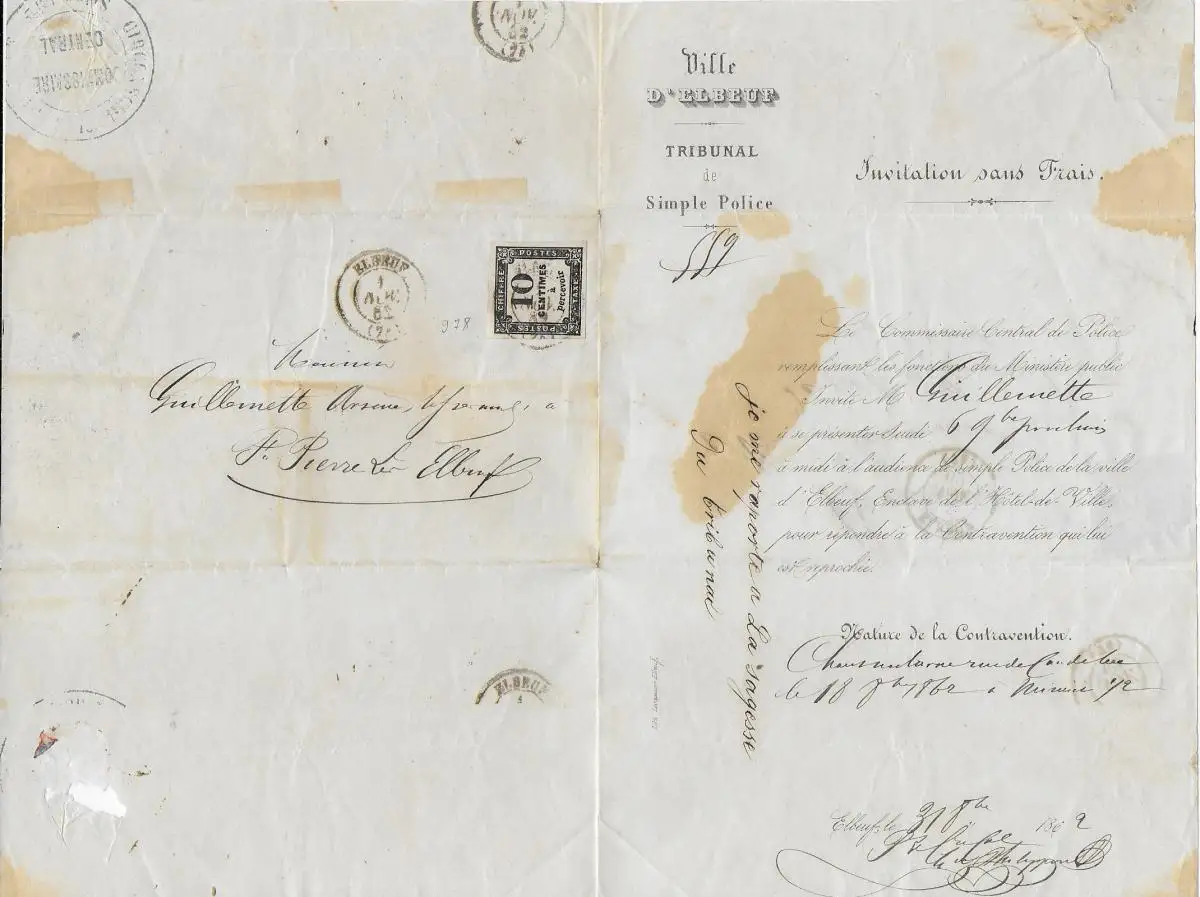 COMMISSAIRE
CENTRAL
NOV.
62
(74)
ELBEUF
1
NOV.
62
POSTES
CHIFFRE
10
CENTIMES
à
percevoir
TAXE
POSTES
978
Monsieur
Guillemette Arsène, à
St Pierre Lès Elbeuf
ELBEUF
1
Ville
D'ELBEUF
TRIBUNAL
de
Simple Police
559
Invitation sans Frais.
Le Commissaire Central de Police
remplissant les fonctions du Ministère public
Invite M Guillemette
à se présenter Jeudi 6 9bre prochain
à midi à l'audience de simple Police de la ville
d'Elbeuf, Enclave de l'Hôtel-de-Ville,
pour répondre à la Contravention qui lui
est reprochée.
je me raporte a La sagesse
Du tribunal
Nature de la Contravention.
Chant nocturne rue de Caudebec
le 18 8bre 1862 à minuit 1/2
Elbeuf, le 31 8bre 1862